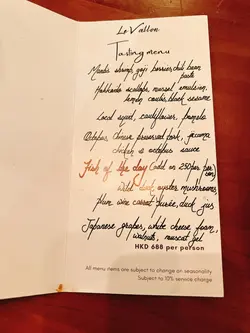 Le Vallon
Tasting menu
Mantis shrimp, goji berries, chili bean
paste
Hokkaido scallops, mussel emulsion,
lemon confits, black sesame
Local squid, cauliflower, pomelo
Octopus, Chinese preserved pork, jicama
chicken & octopus sauce
Fish of the day (add on 250 per
person)
Wild duck, oyster, mushrooms
Plum wine carrot purée, duck jus
Japanese grapes, white cheese foam,
walnuts, muscat gel
HKD 688 per person
All menu items are subject to change on seasonality
Subject to 10% service charge